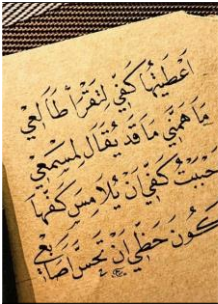 أَعْطَيْتُهَا كَفِّي لِتَقْرَأَ طَالِعِي
مَا هَمَّنِي مَا قَدْ يُقَالُ لِمَسْمَعِي
أَحْبَبْتُ كَفِّي أَنْ يُلَامِسَ كَفَّهَا
وَيَكُونُ حَظِّي أَنْ تَحُسَّ أَصَابِعِي